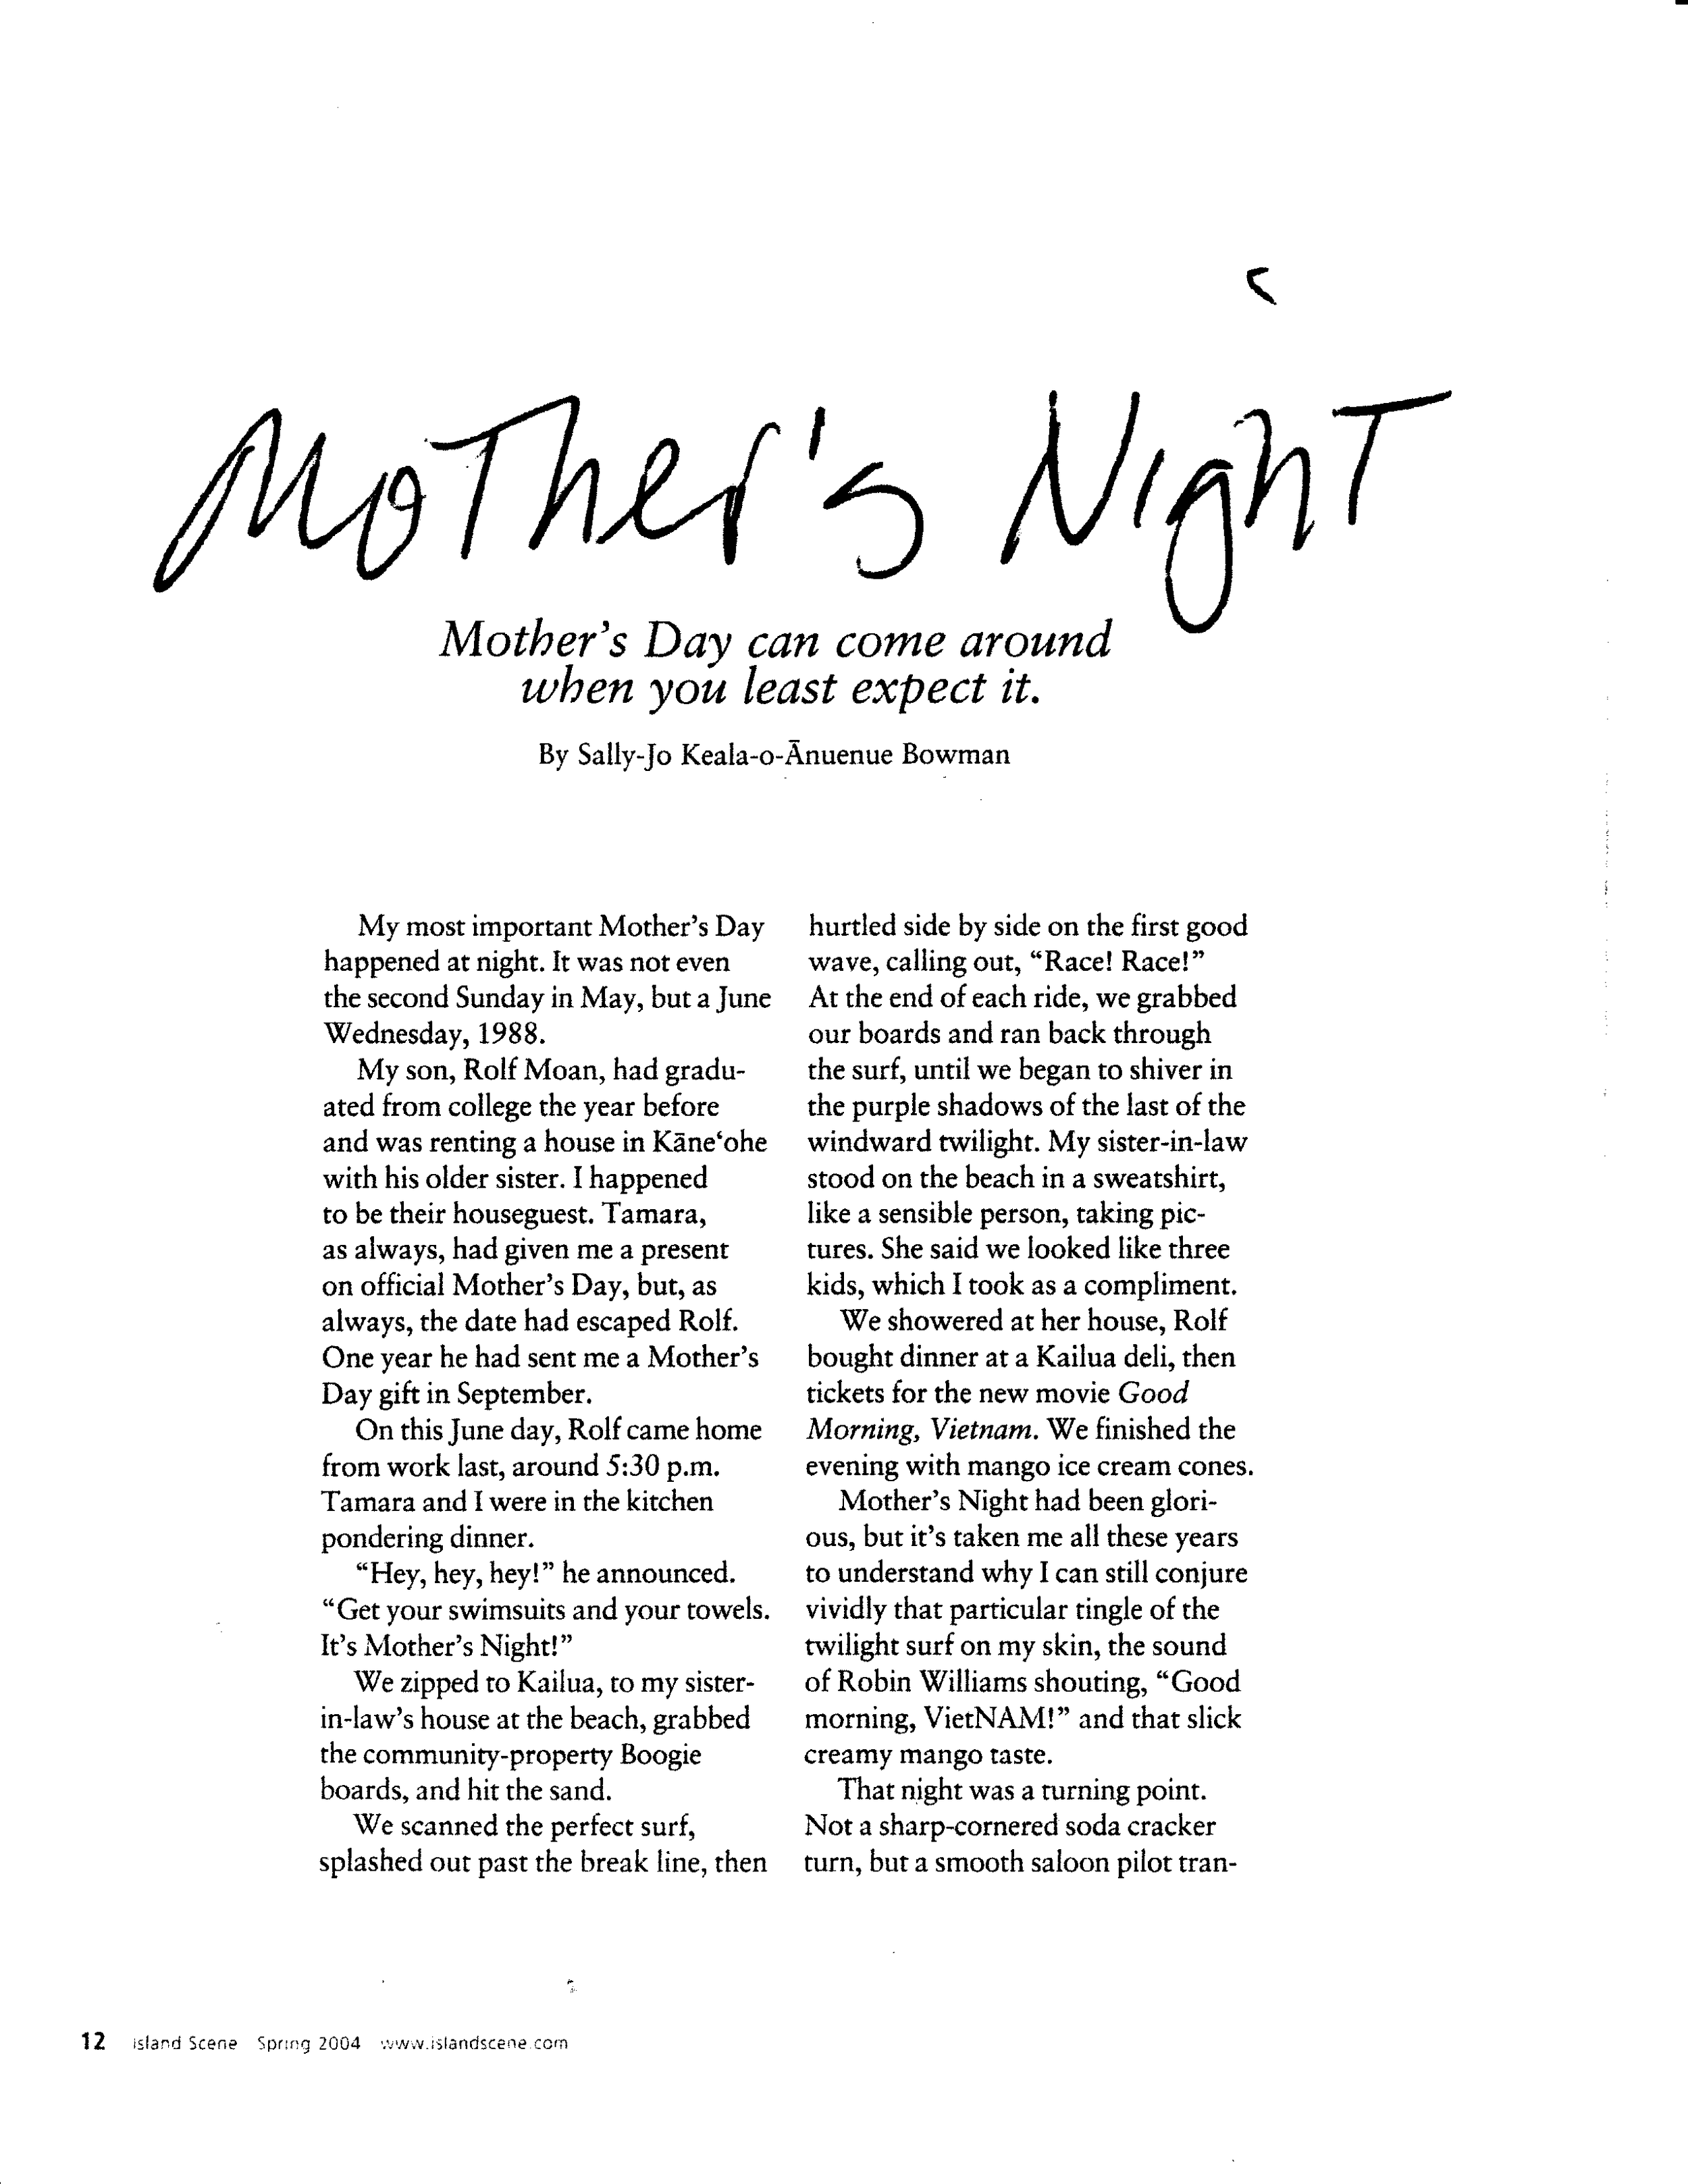 MoTher's NighT
Mother's Day can come around
when you least expect it.
By Sally-Jo Keala-o-Ānuenue Bowman
My most important Mother's Day
happened at night. It was not even
the second Sunday in May, but a June
Wednesday, 1988.
My son, Rolf Moan, had gradu-
ated from college the year before
and was renting a house in Kāne‘ohe
with his older sister. I happened
to be their houseguest. Tamara,
as always, had given me a present
on official Mother's Day, but, as
always, the date had escaped Rolf.
One year he had sent me a Mother's
Day gift in September.
On this June day, Rolf came home
from work last, around 5:30 p.m.
Tamara and I were in the kitchen
pondering dinner.
“Hey, hey, hey!” he announced.
“Get your swimsuits and your towels.
It's Mother's Night!”
We zipped to Kailua, to my sister-
in-law's house at the beach, grabbed
the community-property Boogie
boards, and hit the sand.
We scanned the perfect surf,
splashed out past the break line, then
hurtled side by side on the first good
wave, calling out, “Race! Race!”
At the end of each ride, we grabbed
our boards and ran back through
the surf, until we began to shiver in
the purple shadows of the last of the
windward twilight. My sister-in-law
stood on the beach in a sweatshirt,
like a sensible person, taking pic-
tures. She said we looked like three
kids, which I took as a compliment.
We showered at her house, Rolf
bought dinner at a Kailua deli, then
tickets for the new movie Good
Morning, Vietnam. We finished the
evening with mango ice cream cones.
Mother's Night had been glori-
ous, but it's taken me all these years
to understand why I can still conjure
vividly that particular tingle of the
twilight surf on my skin, the sound
of Robin Williams shouting, “Good
morning, VietNAM!” and that slick
creamy mango taste.
That night was a turning point.
Not a sharp-cornered soda cracker
turn, but a smooth saloon pilot tran-
12 island Scene Spring 2004 www.islandscene.com